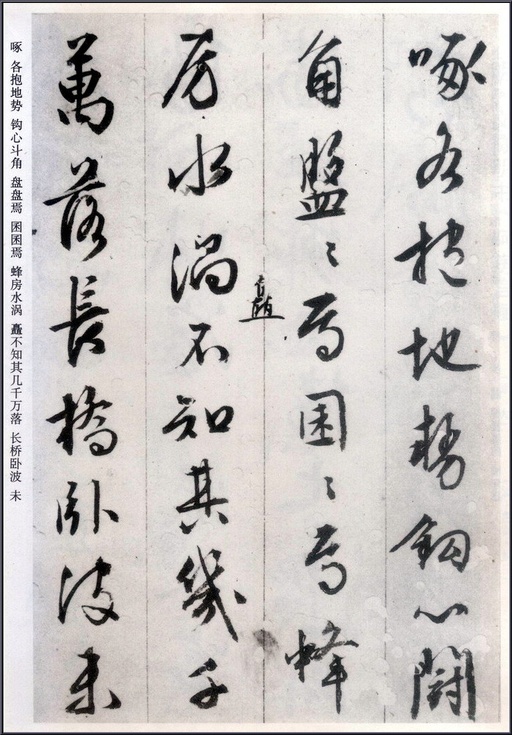 啄各抱地勢鈎心鬭
角盤〻焉囷〻焉蜂
房水渦矗不知其幾千
萬落長橋臥波未
啄 各抱地势 钩心斗角 盘盘焉 囷囷焉 蜂房水涡 矗不知其几千万落 长桥卧波 未